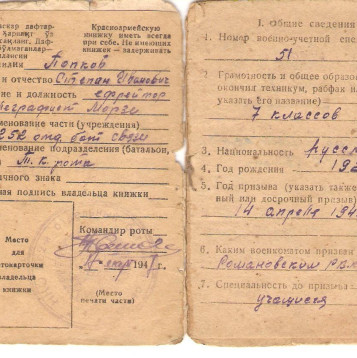 Красноармейскую
книжку иметь всегда
при себе. Не имеющих
книжек — задерживать
Попков
и отчество Степан Иванович
ие и должность ефрейтор
Морзе
менование части (учреждения)
отд. бат связи
менование подразделения (батальон,
Т. К. рота
ичного знака
ная подпись владельца книжки
Место
для
отокарточки
владельца
книжки
Командир роты
194
(Место
печати части)
I. Общие сведения
1. Номер военно-учетной спе
51
2. Грамотность и общее образо
окончил техникум, рабфак и
указать его название)
7 классов
3. Национальность русск
4. Год рождения 192
5. Год призыва (указать также
ный или досрочный призыв)
14 апреля 194
6. Каким военкоматом призван
Романовским РВК
7. Специальность до призыва
учащийся